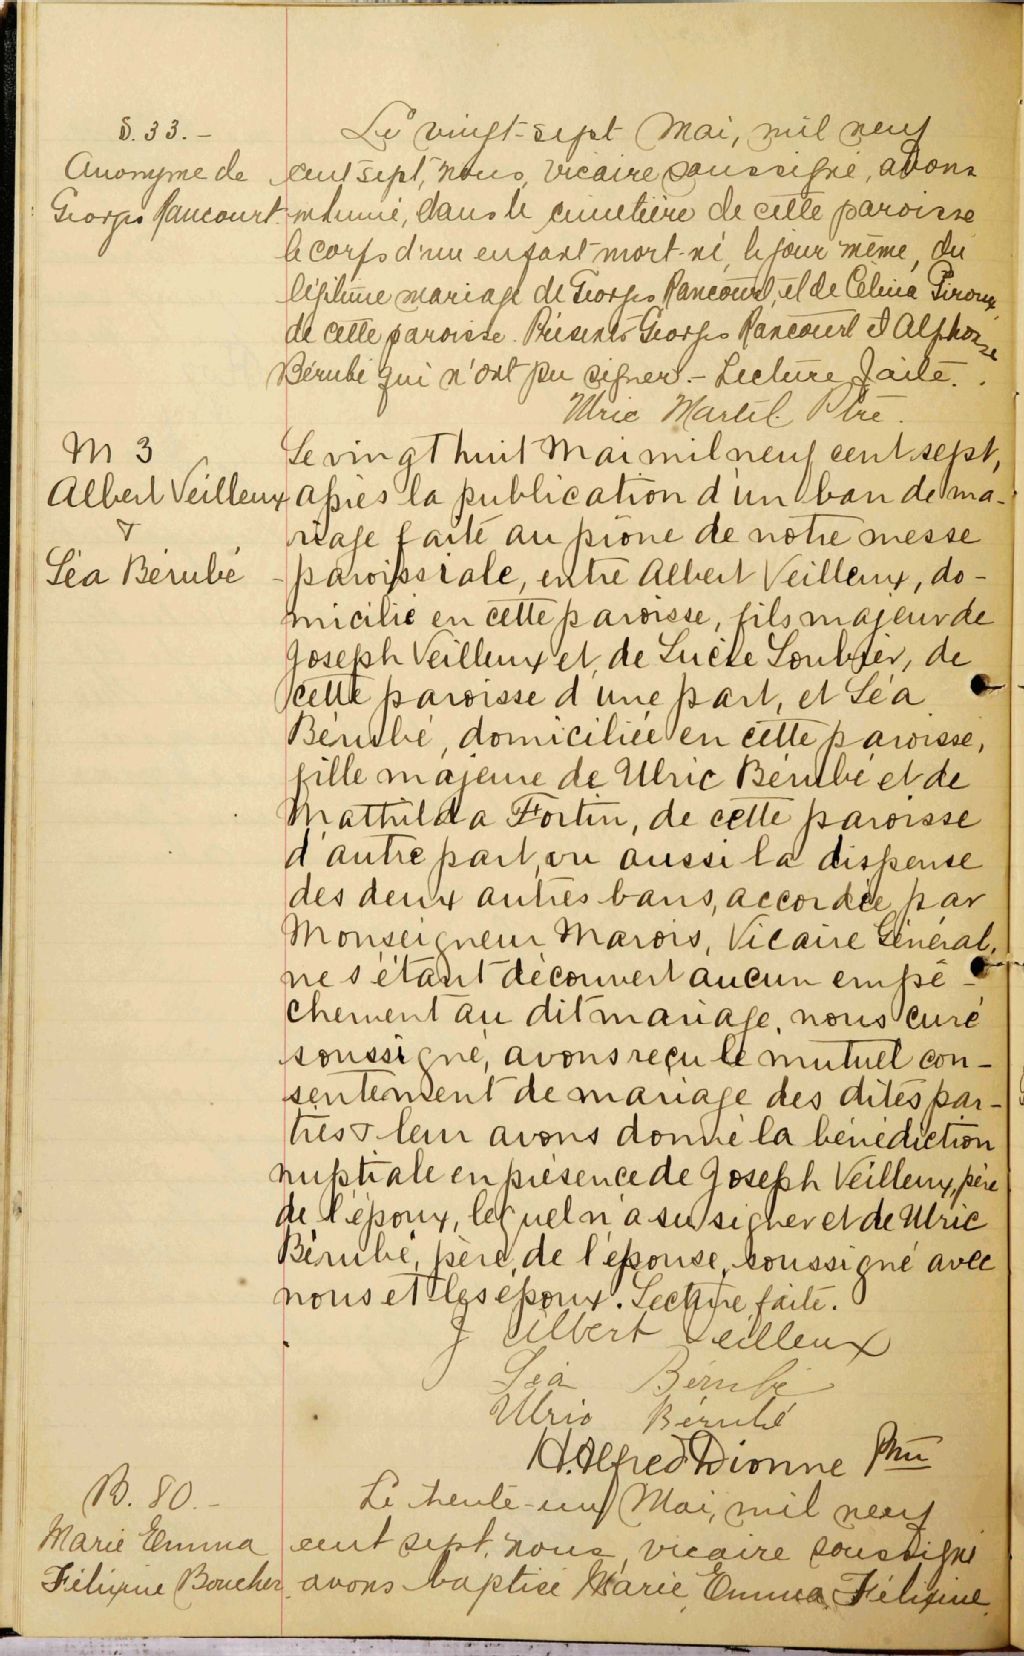 S. 33. –
Anonyme de
Georges Rancourt
Le vingt-sept Mai, mil neuf
cent sept, nous, vicaire soussigné, avons
inhumé, dans le cimetière de cette paroisse
le corps d'un enfant mort-né, le jour même, du
légitime mariage de Georges Rancourt, et de Célina Giroux,
de cette paroisse. Présents Georges Rancourt & Alphonse
Bérubé qui n'ont pu signer. – Lecture faite.
Ulric Martel Ptre.
M 3
Albert Veilleux
&
Léa Bérubé
Le vingt huit Mai mil neuf cent sept,
après la publication d'un ban de ma-
riage faite au prône de notre messe
paroissiale, entre Albert Veilleux, do-
micilié en cette paroisse, fils majeur de
Joseph Veilleux et de Lucie Loubier, de
cette paroisse d'une part, et Léa
Bérubé, domiciliée en cette paroisse,
fille majeure de Ulric Bérubé et de
Mathilda Fortin, de cette paroisse
d'autre part, vu aussi la dispense
des deux autres bans, accordée par
Monseigneur Marois, Vicaire Général,
ne s'étant découvert aucun empê-
chement au dit mariage, nous curé
soussigné, avons reçu le mutuel con-
sentement de mariage des dites par-
ties & leur avons donné la bénédiction
nuptiale en présence de Joseph Veilleux, père
de l'époux, lequel n'a su signer et de Ulric
Bérubé, père, de l'épouse, soussigné avec
nous et les époux. Lecture faite.
J Albert Veilleux
Léa Bérubé
Ulric Bérubé
H. Alfred Dionne Ptre
B. 80. –
Marie Emma
Félixine Boucher
Le trente-un Mai, mil neuf
cent sept, nous, vicaire soussigné
avons baptisé Marie, Emma, Félixine,